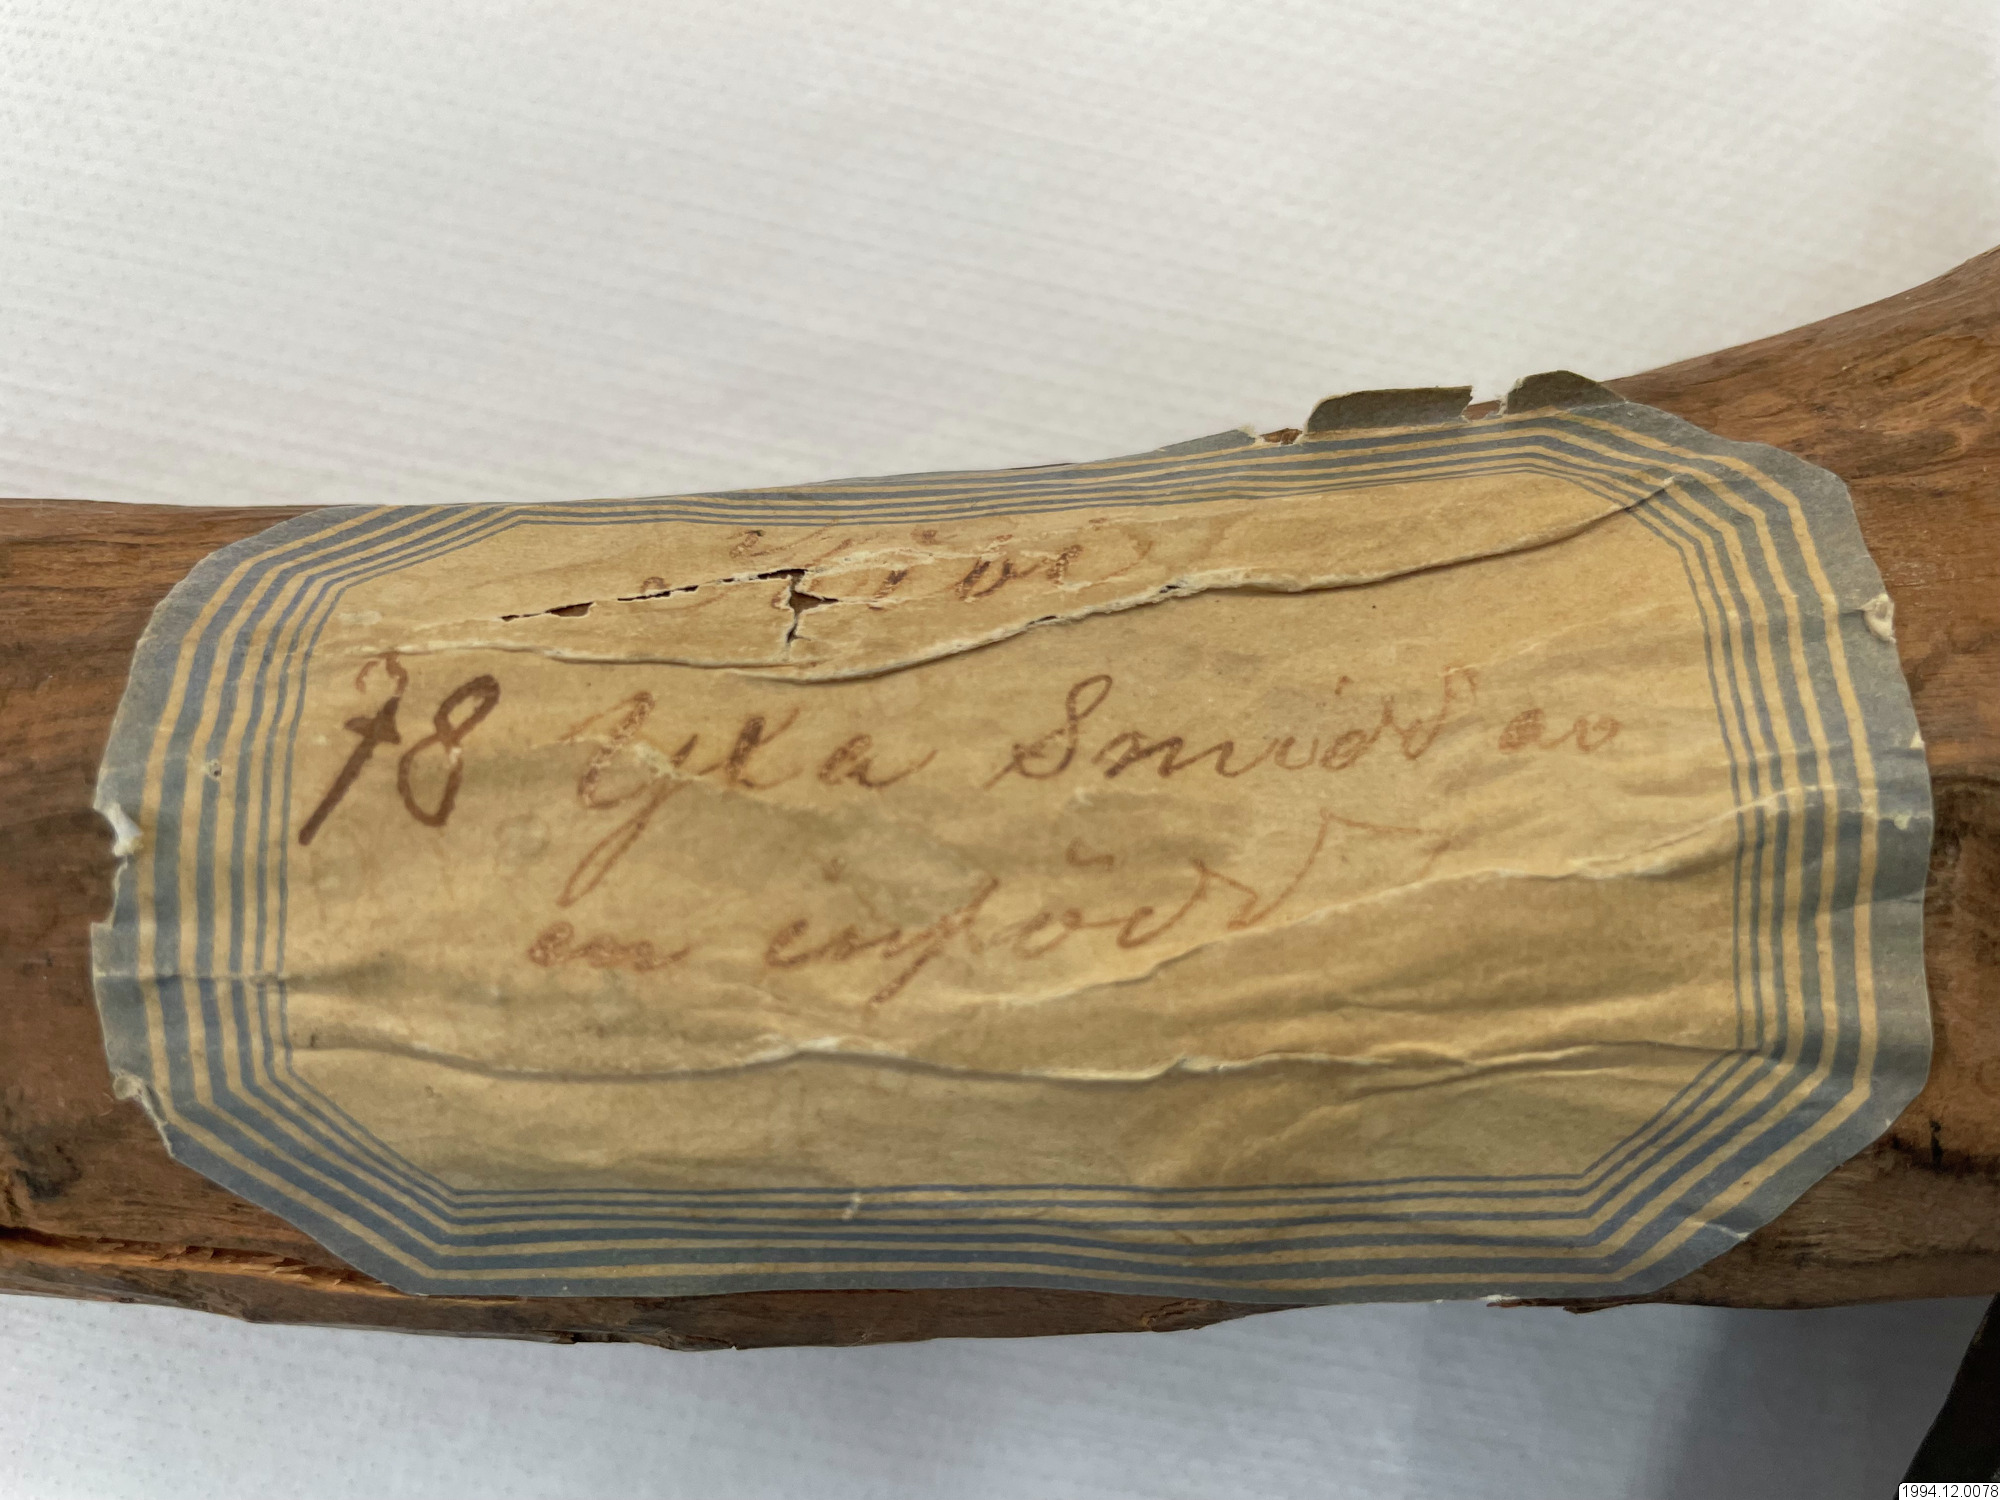 Kivi
78 Yxa Smidd av
en infödd
1994.12.0078